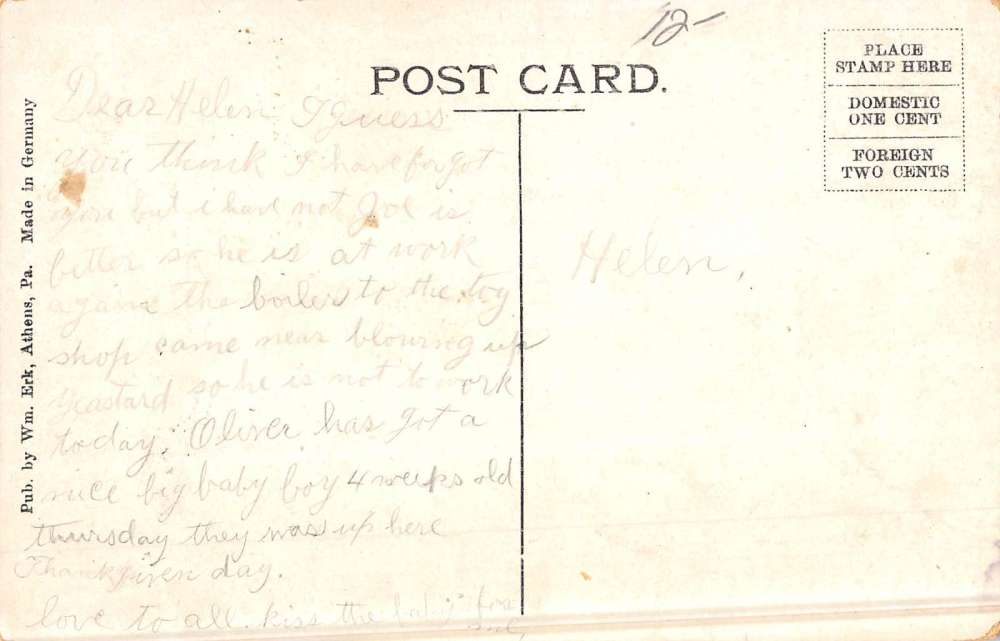 12-
POST CARD.
PLACE
STAMP HERE
DOMESTIC
ONE CENT
FOREIGN
TWO CENTS
Pub. by Wm. Erk, Athens, Pa. Made in Germany
Dear Helen I Guess
you think I have forgot
you but i have not Joe is
better so he is at work
again the boiler to the toy
shop came near blowing up
yeastard so he is not to work
today. Oliver has got a
nice big baby boy 4 weeks old
thursday they was up here
Thankgiven day.
love to all. kiss the baby for
Helen,